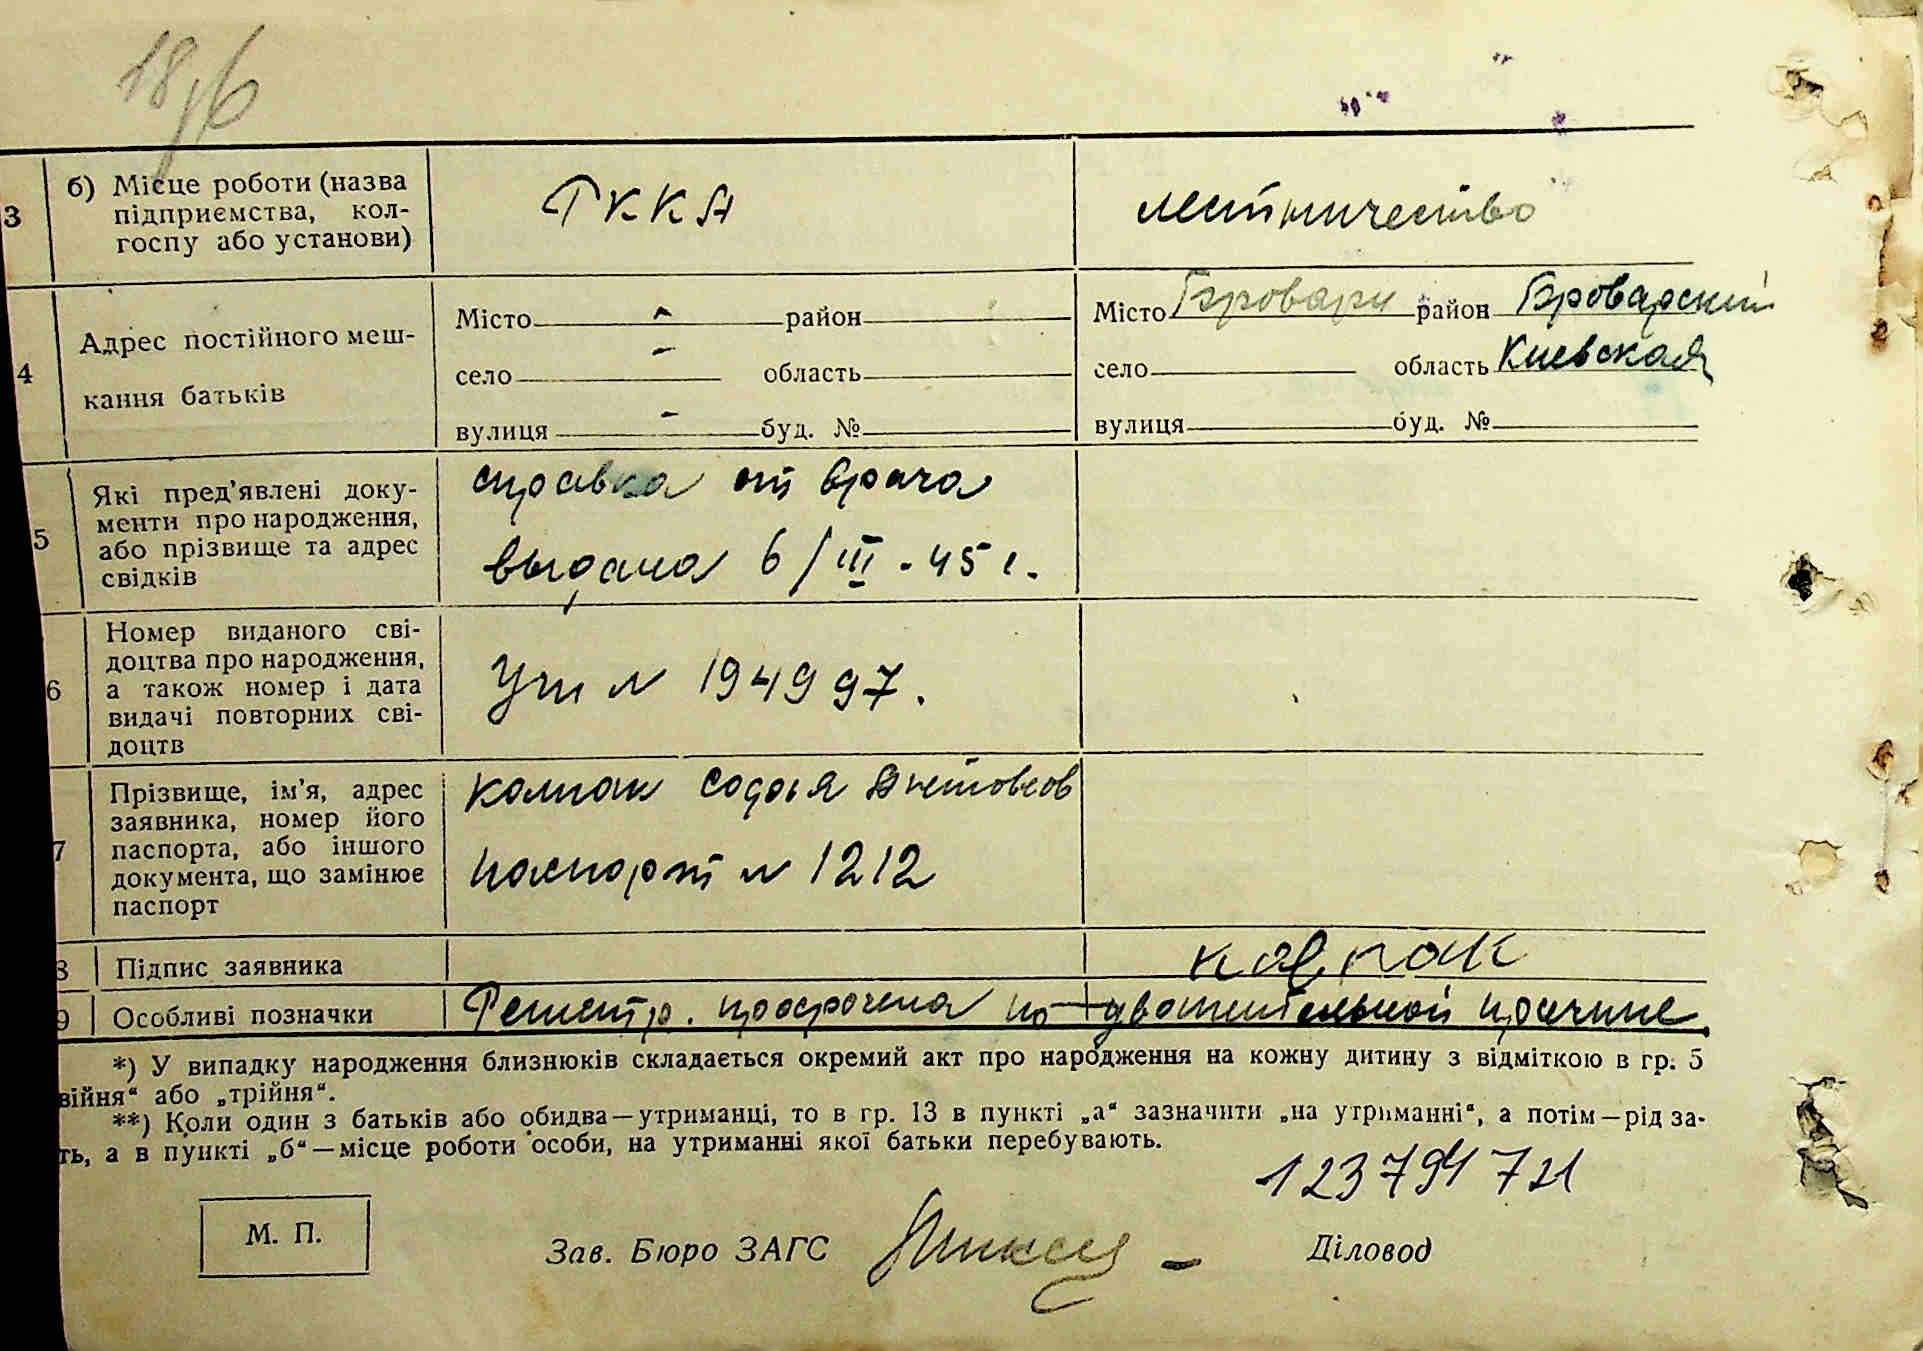 18/6
3
б) Місце роботи (назва
підприємства, кол-
госпу або установи)
РККА
лесничество
4
Адрес постійного меш-
кання батьків
Місто — район
село — область
вулиця — буд. №
Місто Бровари район Броварский
село область Киевская
вулиця буд. №
5
Які пред’явлені доку-
менти про народження,
або прізвище та адрес
свідків
справка от врача
выдана 6/III-45 г.
6
Номер виданого сві-
доцтва про народження,
а також номер і дата
видачі повторних сві-
доцтв
№ 194997.
7
Прізвище, ім’я, адрес
заявника, номер його
паспорта, або іншого
документа, що замінює
паспорт
Колпак
паспорт № 1212
8
Підпис заявника
Колпак
9
Особливі позначки
Регистр. просрочена по уважительной причине.
*) У випадку народження близнюків складається окремий акт про народження на кожну дитину з відміткою в гр. 5
війня“ або „трійня“.
**) Коли один з батьків або обидва—утриманці, то в гр. 13 в пункті „а“ зазначити „на утриманні“, а потім—рід за-
ть, а в пункті „б“—місце роботи особи, на утриманні якої батьки перебувають.
М. П.
Зав. Бюро ЗАГС
Діловод